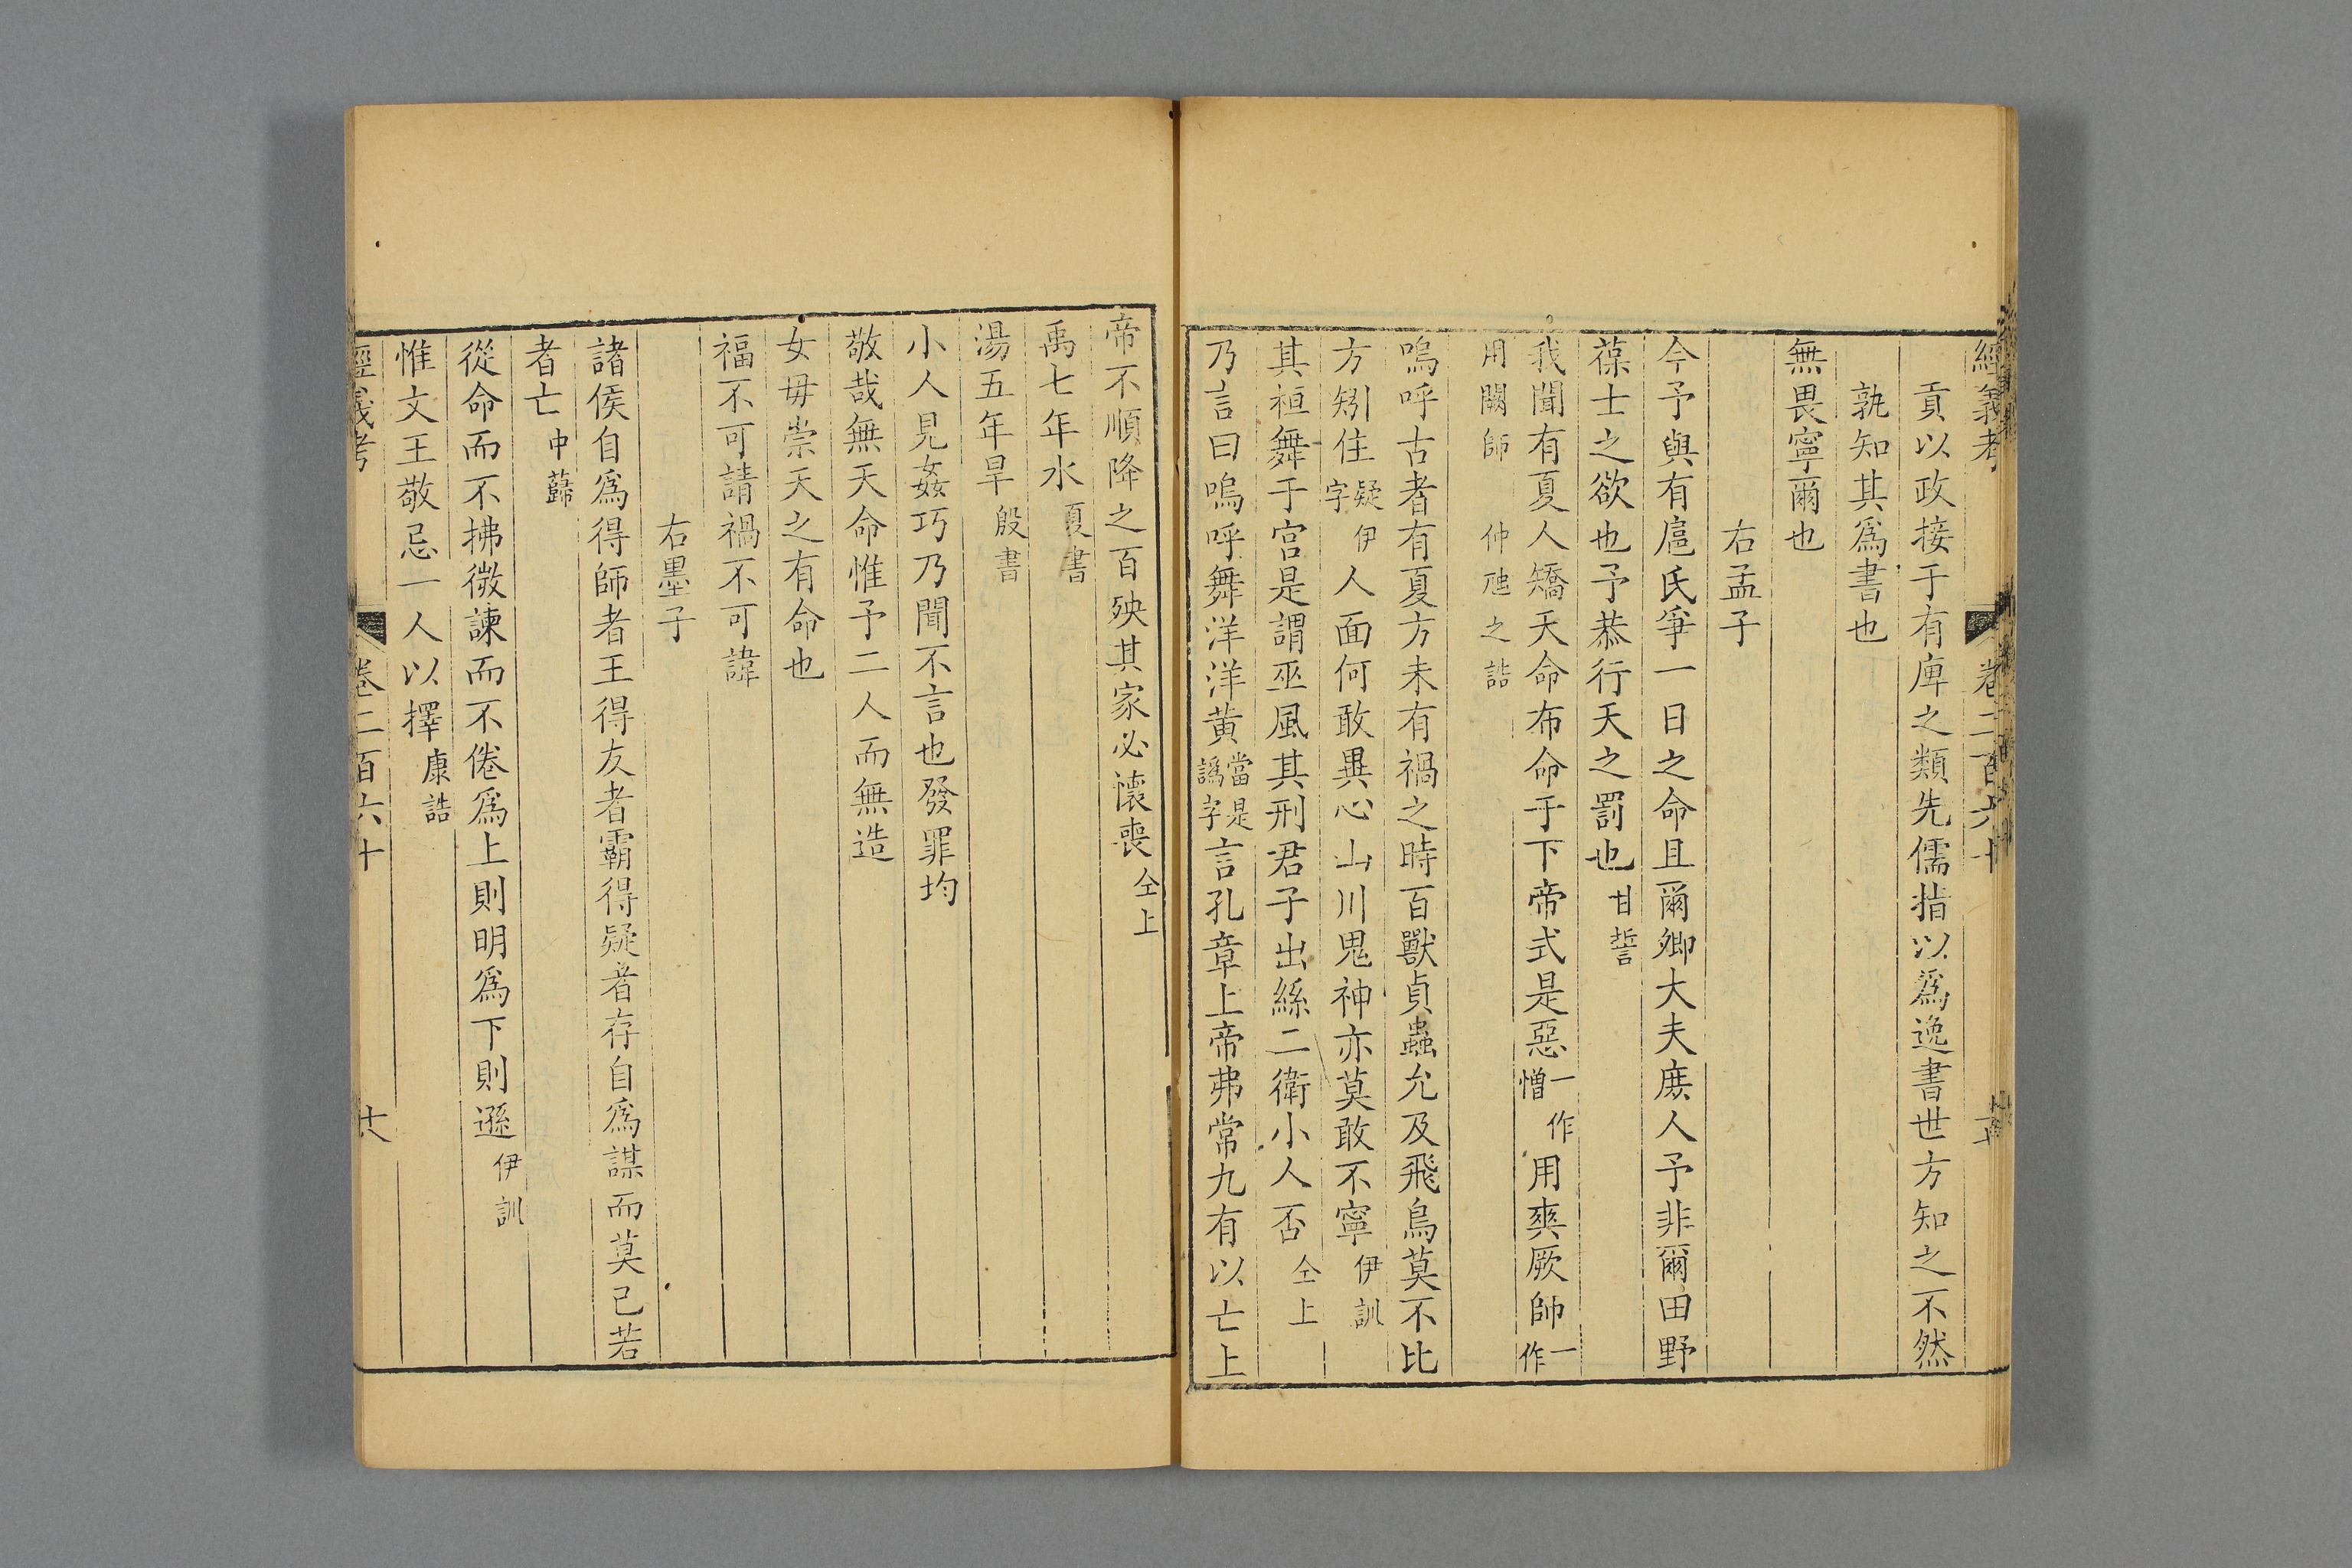 經義考 卷二百六十
貢以政接于有庳之類先儒指以爲逸書世方知之不然
孰知其爲書也
無畏寧爾也
右孟子
今予與有扈氏爭一日之命且爾卿大夫庶人予非爾田野
葆士之欲也予恭行天之罰也 甘誓
我聞有夏人矯天命布命于下帝式是惡 一作憎 用爽厥師 一作
用闕師 仲虺之誥
嗚呼古者有夏方未有禍之時百獸貞蟲允及飛鳥莫不比
方矧住 疑伊字 人面何敢異心山川鬼神亦莫敢不寧 伊訓
其桓舞于宮是謂巫風其刑君子出絲二衛小人否 仝上
乃言曰嗚呼舞洋洋黃 當是譌字 言孔章上帝弗常九有以亡上
帝不順降之百殃其家必懷喪 仝上
禹七年水 夏書
湯五年旱 殷書
小人見姦巧乃聞不言也發罪均
敬哉無天命惟予二人而無造
女毋崇天之有命也
福不可請禍不可諱
右墨子
諸侯自爲得師者王得友者霸得疑者存自爲謀而莫已若
者亡 中蘬
從命而不拂微諫而不倦爲上則明爲下則遜 伊訓
惟文王敬忌一人以擇 康誥
經義考 卷二百六十 廿八